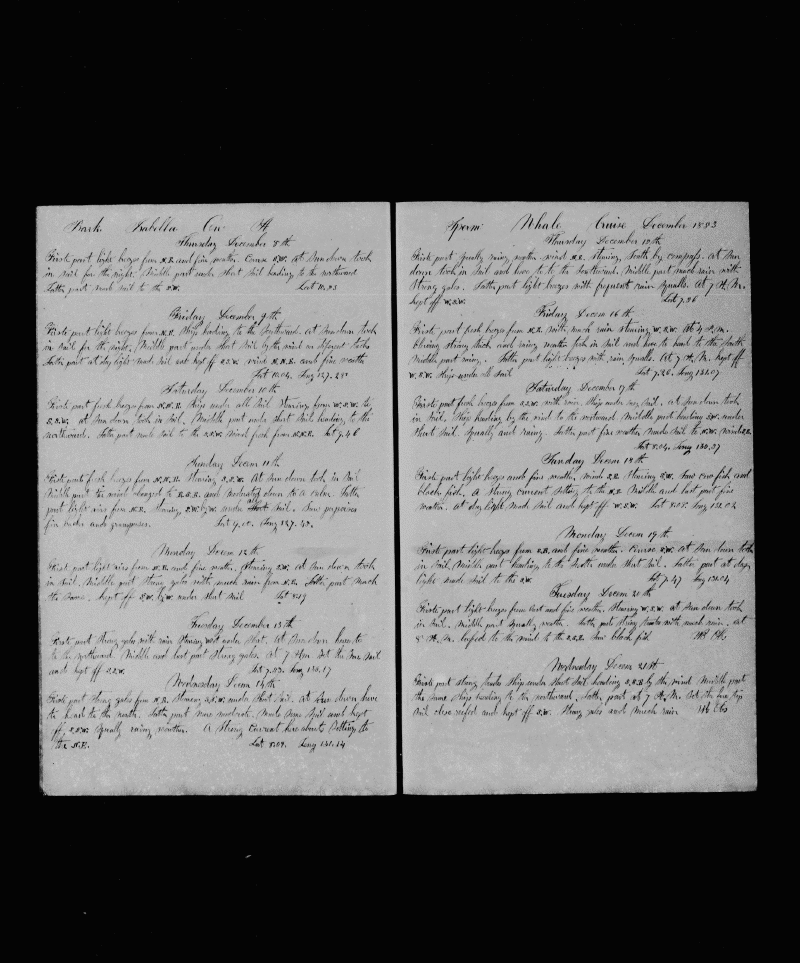 Bark Isabella On A
Thursday December 8th
First part light breezes from N.E. and fine weather. Course S.W. at Sun down took
in sail for the night. Middle part under Short Sail heading to the northward
Latter part made sail to the S.W. Lat 11.23
Friday December 9th
First part light breezes from N.E. Ship heading to the Southward. at Sun down took
in sail for the night. Middle part under Short Sail by the wind on different tacks
Latter part at day light made sail and kept off S.S.W. wind N.N.E. and fine weather
Lat 10.04. Long 127.25
Saturday December 10th
First part fresh breezes from N.N.E. Ship under all Sail Steering from W.S.W. to
S.S.W. at Sun down took in Sail. Middle part under Short Sail heading to the
northward. Latter part made Sail to the S.S.W. Wind fresh from N.N.E. Lat 9.46
Sunday Decem 11th
First part fresh breezes from N.N.E. Steering S.S.W. At Sun down took in Sail
Middle part the wind changed to and down to a calm. Latter
part light airs from N.E. Steering S.W. by W. under Sail. Saw porpoises
fin backs and grampuses. Lat 9.10. Long 127.42
Monday Decem 12th
First part light airs from N.E. and fine weather. Steering S.W. At Sun down took
in Sail. Middle part Strong gales with much rain from N.E. Latter part much
the Same. kept off S.W. by W. under Short Sail Lat 8.19
Tuesday Decem 13th
First part Strong gales with rain Steering West under Short. At Sun down hove to
to the northward. Middle and last part Strong gales. At 7 A.M. Set the Sail
and kept off S.S.W. Lat 7.53. Long 130.17
Wednesday Decem 14th
First part Strong gales from N.E. Steering S.S.W. under Short Sail. At Sun down hove
to head to the north. Latter part more moderate. Made More Sail and kept
off S.S.W. Squally rainy weather. A Strong Current here abouts Setting to
the N.E. Lat 8.09. Long 131.14
Sperm Whale Cruise December 1883
Thursday December 15th
First part Squally rainy weather wind N.E. Steering South by compass. at Sun
down took in Sail and hove to to the Southward. Middle part much rain with
Strong gales. Latter part light breezes with frequent rain Squalls. At 7 A.M.
kept off W.S.W. Lat 7.56
Friday Decem 16th
First part fresh breezes from N.E. with much rain steering W.S.W. At 4 P.M.
blowing strong thick and rainy weather took in Sail and hove to head to the South
Middle part rainy. Latter part light breezes with rain Squalls. At 7 A.M. kept off
W.S.W. Ship under all Sail Lat 7.26. Long 132.07
Saturday December 17th
First part fresh breezes from E.S.E. with rain. Ship under Sail. at Sun down took
in Sail. Ship heading by the wind to the northward. Middle part heading under
Short Sail. Squally and rainy. Latter part fine weather made Sail to N.W. wind
Lat 8.04. Long 130.27
Sunday Decem 18th
First part light breezes and fine weather, wind S.E. Steering S.W. Saw fish and
black fish. A strong current setting to the N.E. Middle and last part fine
weather. At day light made Sail and kept off W.S.W. Lat 8.05. Long 132.02
Monday Decem 19th
First part light breezes from S.E. and fine weather. Course S.W. at Sun down took
in Sail. Middle part heading to the North under Short Sail. Latter part at day
light made Sail to the S.W. Lat 7.47 Long 132.04
Tuesday Decem 20th
First part light breezes from East and fine weather. Steering W.S.W. at Sun down took
in Sail. Middle part Squally weather. Latter part Strong breezes with much rain. At
8 A.M. luffed to the wind to the S.S.E. Saw black fish No Obs
Wednesday Decem 21st
First part strong gales Ship under Short Sail heading S.S.E. by the wind Middle part
the Same Ship heading to the northward. Latter part at 7 A.M. Set the top
Sail close reefed and kept off S.W. Strong gales and Much rain No Obs